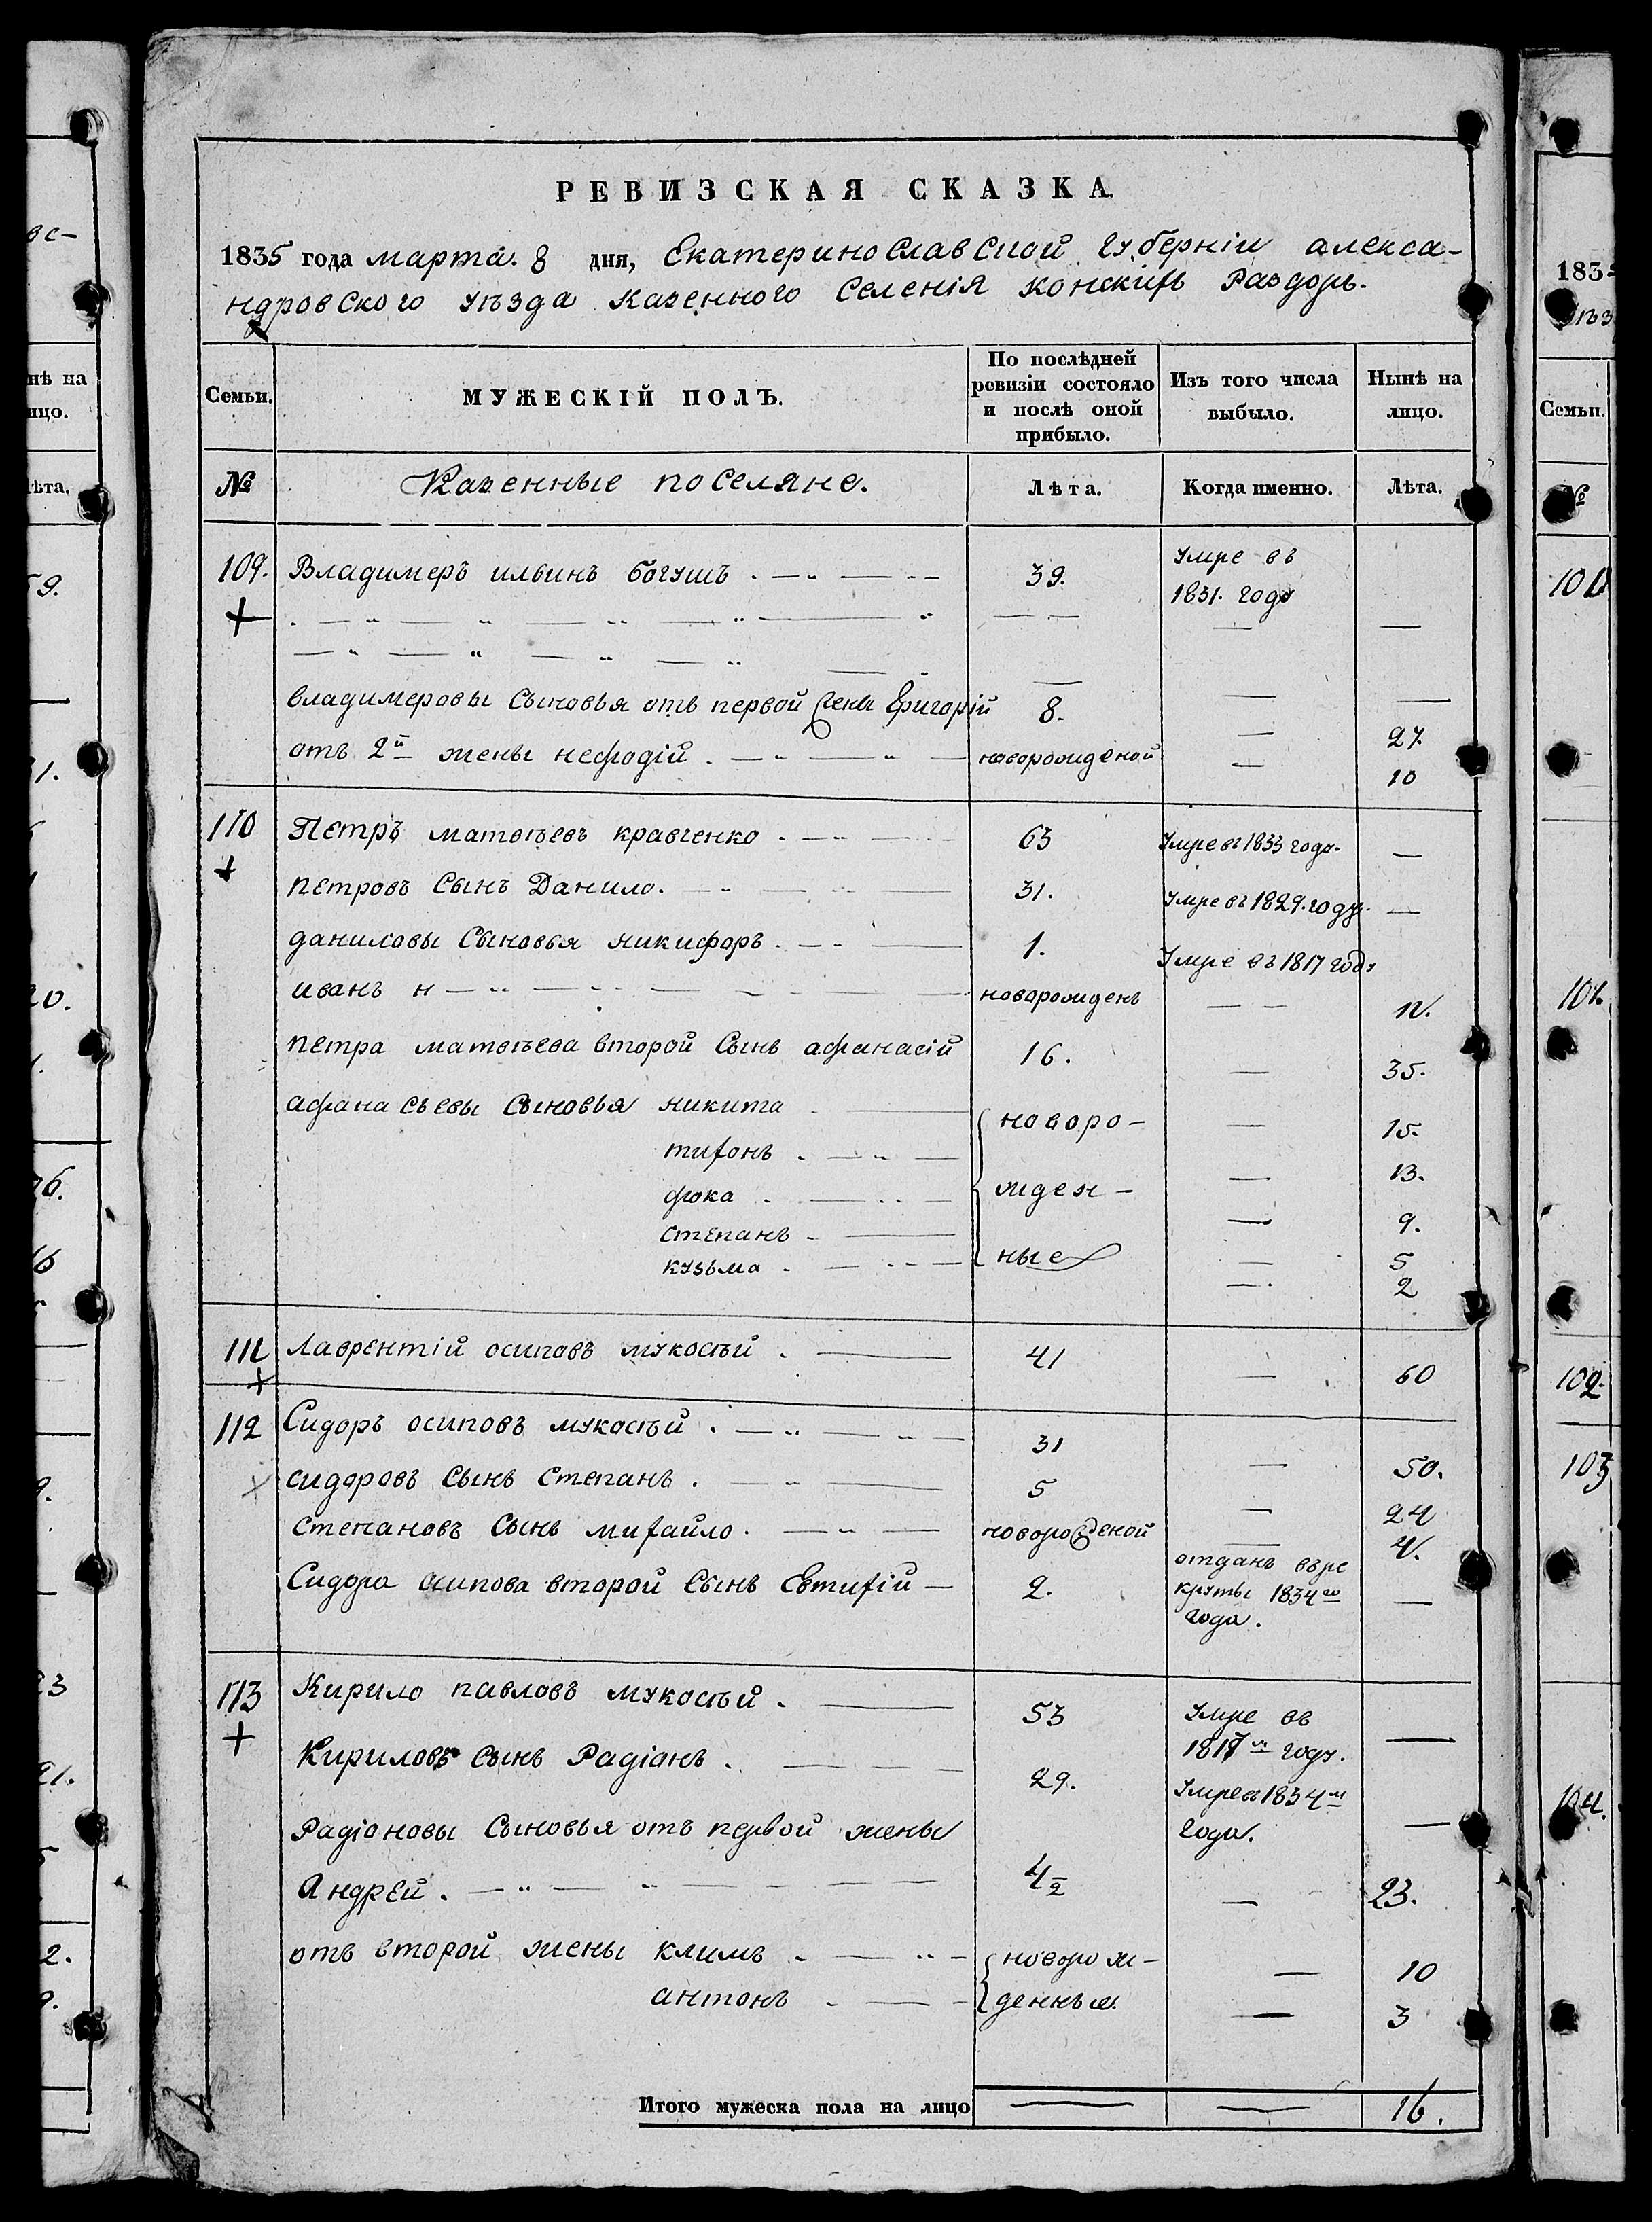 РЕВИЗСКАЯ СКАЗКА.
1835 года марта. 8 дня, Екатеринославской губерніи алекса-
ндровского уѣзда казенного селенія конскихъ Раздоръ.
Семьи. МУЖЕСКІЙ ПОЛЪ. По послѣдней ревизіи состояло и послѣ оной прибыло. Изъ того числа выбыло. Нынѣ на лицо.
№ Казенные поселяне. Лѣта. Когда именно. Лѣта.
109. Владимеръ ильинъ богушъ. 39. умре въ
1831. году
владимеровы сыновья отъ первой жены Григорій 8. — 27.
отъ 2й жены нефодій. новорожденой — 10
110 Петръ матвѣевъ кравченко. 63 умре въ 1833 году. —
петровъ сынъ Данило. 31. умре въ 1829. году. —
даниловы сыновья никифоръ. 1. умре въ 1817 году
иванъ н новорожденъ — 12.
петра матвѣева второй сынъ афанасій 16. — 35.
афанасьевы сыновья никита { новоро- — 15.
тихонъ. — 13.
фока. жден- — 9.
степанъ ные — 5
кузьма — 2
111 Лаврентій осиповъ мукосѣй. 41 — 60
112 Сидоръ осиповъ мукосѣй. 31 — 50.
сидоровъ сынъ степанъ. 5 — 24
степановъ сынъ михайло. новорожденой — 4.
Сидора осипова второй сынъ Евтихій — 2. отданъ въре
круты 1834го —
года.
113 Кирило павловъ мукосѣй. 53 умре въ —
181 м году.
Кириловъ сынъ Радіонъ. 29. умре въ 1834м
Радіоновы сыновья отъ первой жены года. —
Андрей. 4 1/2 — 23.
отъ второй жены климъ { новорож- — 10
антонъ денные. — 3
Итого мужеска пола на лицо — — 16.
нѣ на
ицо.
лѣта.
59.
183
Семьи.
№
101.
102.
103
104.